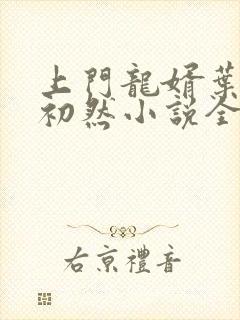 上門龍婿葉
初然小說全
右京禮音